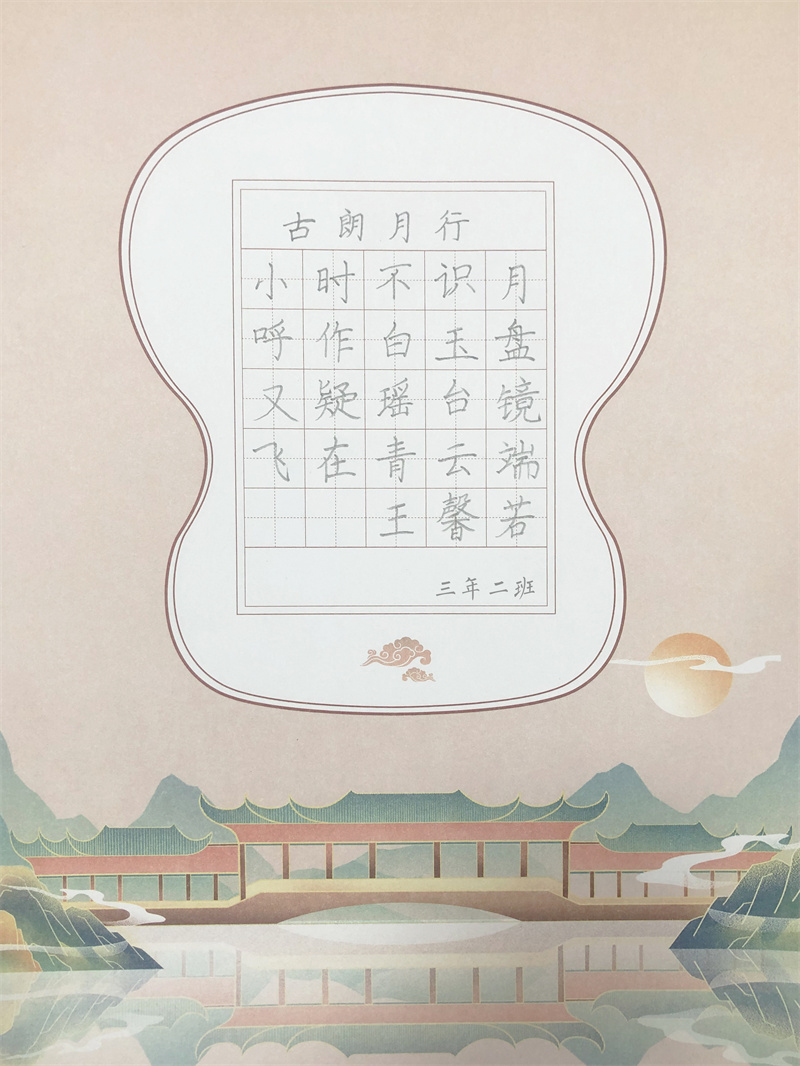 古朗月行
小时不识月
呼作白玉盘
又疑瑶台镜
飞在青云端
王馨若
三年二班